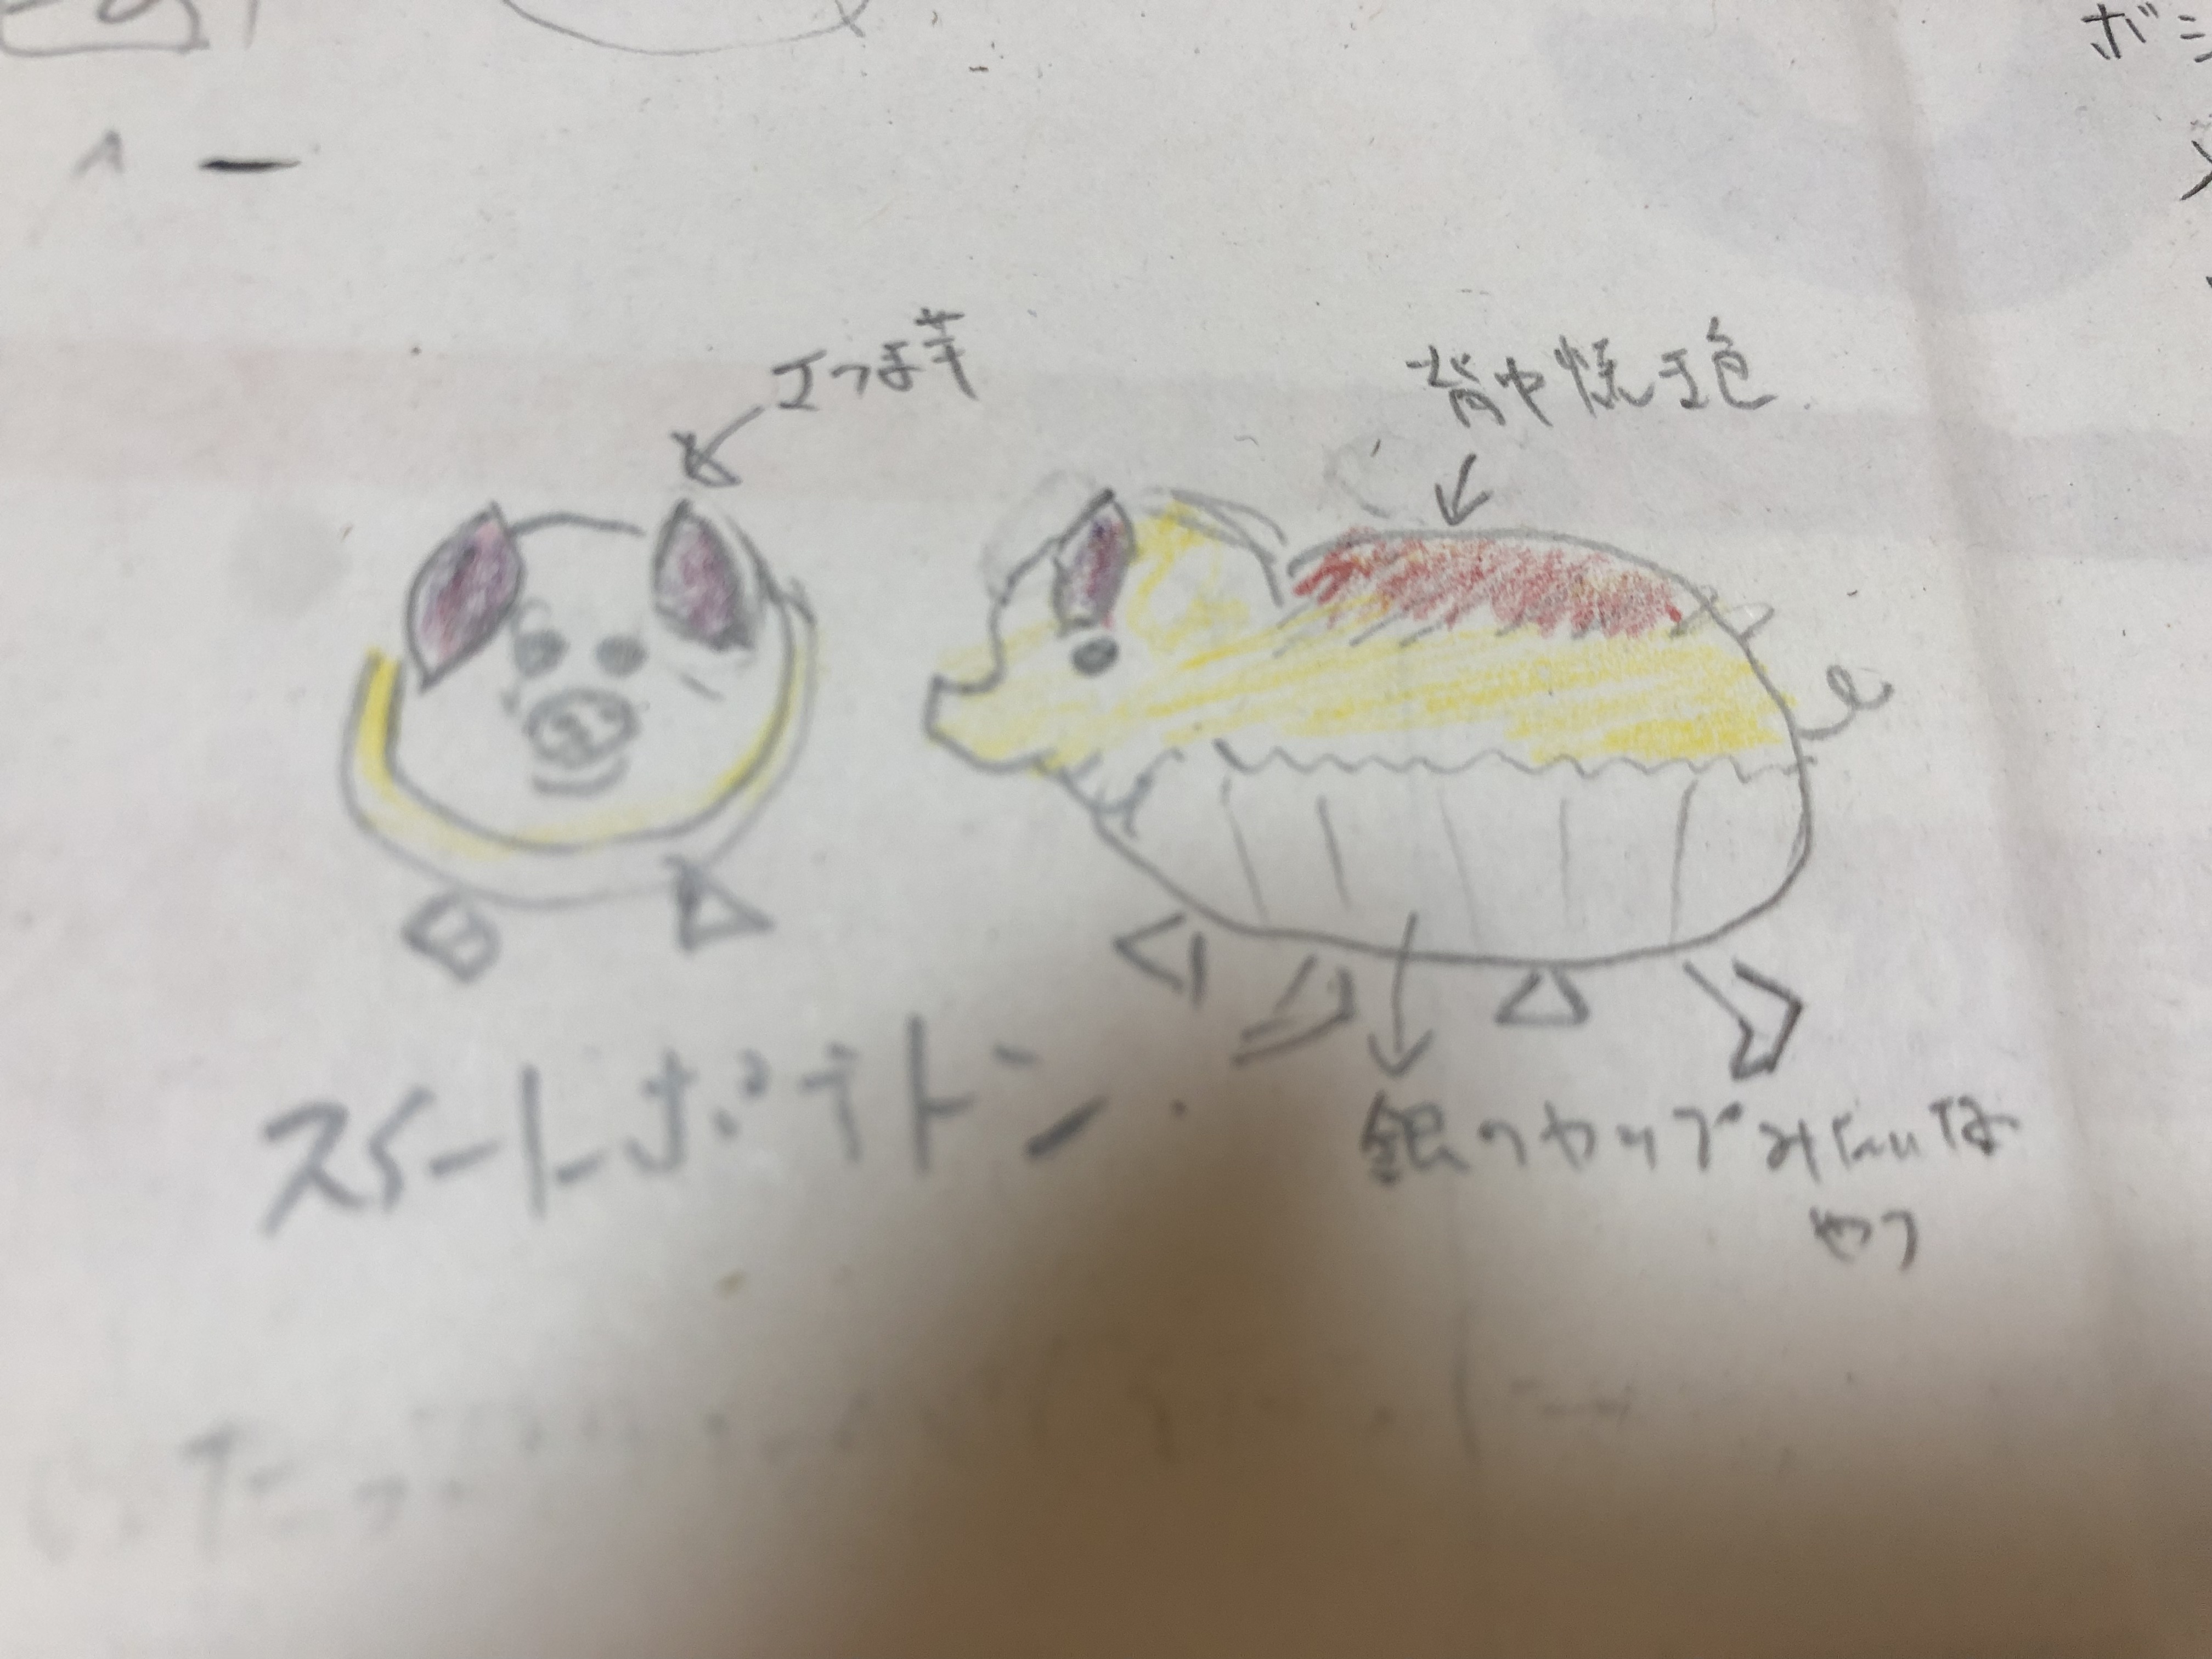 ボシ
さつま芋
背中焼き色
スイートポテトン
銀のカップみたいな
やつ